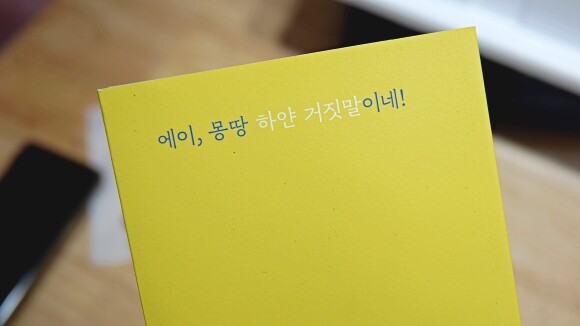 에이, 몽땅 하얀 거짓말이네!